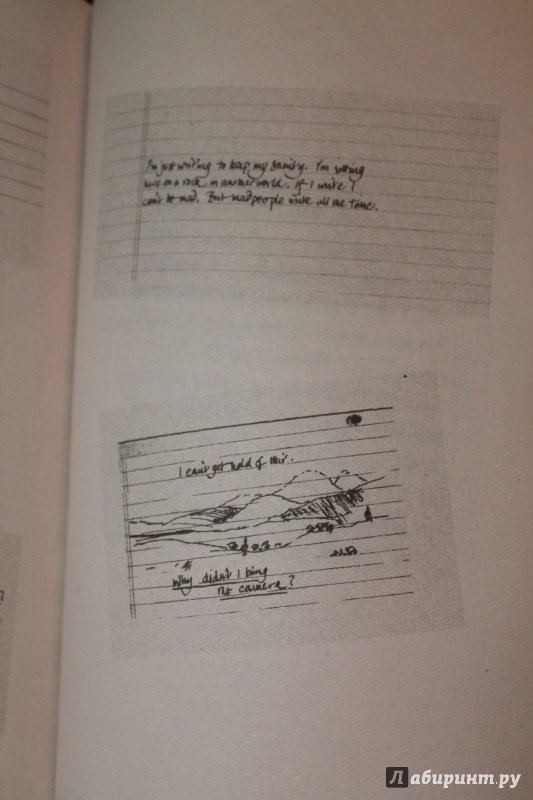 I'm just writing to keep my sanity. I'm sitting
here on a rock in another world. If I write I
can't be mad. But mad people write all the time.
I can't get hold of this.
Why didn't I bring
the camera?
?
Лабиринт.ру